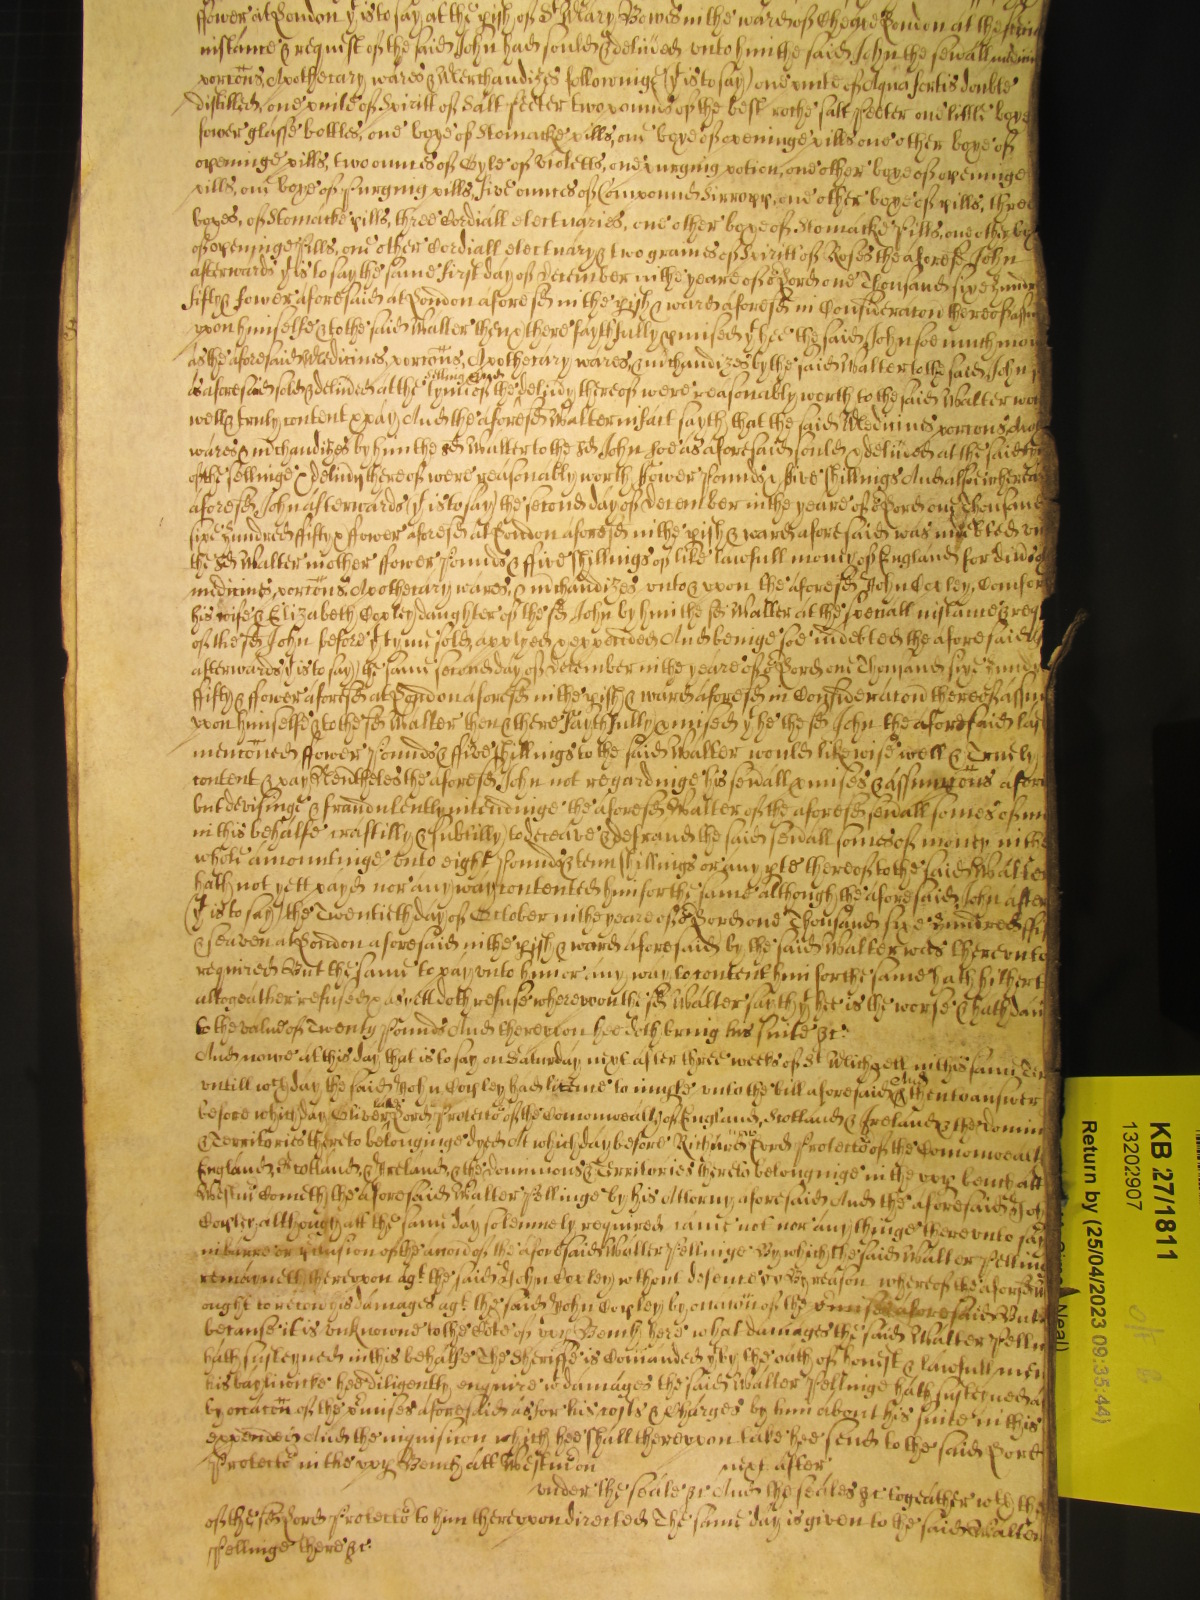 ffower at London yt is to say at the pish of St Mary Bowe in the ward of Cheape London at the speciall
instance & request of the said John had sould & deliued vnto him the said John the seuall medicines
porcons Apothecary wares & Merchandizes followinge (yt is to say) one vnce of Aqua fortis double
distilled, one vnce of Spiritt of Salt peeter two pounds of the best roche salt peeter one little boxe
fower glasse bottles, one boxe of Stomacke pills, one boxe of openinge pills one other boxe of
openinge pills, two ounces of Oyle of violetts, one purging potion, one other boxe of openinge
pills, one boxe of Purging pills, five ounces of Compound Sirropp, one other boxe of pills, three
boxes of Stomacke pills, three Cordiall electuaries, one other boxe of Stomacke Pills, one other boxe
of openinge Pills, one other Cordiall electuary & two graines of Spiritt of Roses the aforesd John
afterwards yt is to say the same first day of December in the yeare of or Lord one Thousand sixe hundred
fifty & fower aforesaid at London aforesd in the pish & ward aforesd in Consideracon thereof assumed
vpon himselfe & to the said Walter then & there faythfully pmised yt hee the said John soe much money
as the aforesaid Medicines, porcons, Apothecary wares, & mchandizes by the said Walter to the said John soe
as aforesaid sold & deliued at the tyme of the sellinge and deliuy thereof were reasonably worth to the said Walter would
well & truly content & pay And the aforesd Walter in fact sayth that the said Medicines porcons Apothecary
wares & mchandizes by him the sd Walter to the sd John soe as aforesaid sould & deliued at the said tyme
of the sellinge & deliuy thereof were reasonably worth ffower Pounds & ffive shillings And also whereas the
aforesd John afterwards (yt is to say) the second day of December in the yeare of or Lord one Thousand
sixe hundred ffifty & ffower aforesd at London aforesd in the pish & ward aforesaid was indebted vnto
the sd Walter in other ffower Pounds & ffive shillings of like lawfull money of England for divers other
medicines, porcons, Apothecary wares, & mchandizes vnto & vpon the aforesd John Coxley, Comfort
his wife & Elizabeth Coxley daughter of the sd John by him the sd Walter at the speciall instance & request
of the sd John before yt tyme sold, applyed & expended And beinge soe indebted the aforesaid John
afterwards (yt is to say) the same second day of December in the yeare of or Lord one Thousand sixe hundred
ffifty & ffower aforesd at London aforesd in the pish & ward aforesd in Consideracon thereof assumed
vpon himselfe & to the sd Walter then & there faythfully pmised yt he the sd John the aforesaid last
menconed ffower Pounds & ffive shillings to the said Walter would likewise well & Truely
content & pay Neutheles the aforesd John not regardinge his seuall pmises & assumpcons aforesd
but devisinge & fraudulently intendinge the aforesd Walter of the aforesd seuall somes of money
in this behalfe craftilly & subtilly to deceave & defraud the said seuall somes of money in the
whole amountinge vnto eight Pounds & tenn shillings or any pte thereof to the said Walter
hath not yett payd nor any way contented him for the same although the aforesaid John afterwards
(yt is to say) the Twentieth day of October in the yeare of or Lord one Thousand sixe hundred ffifty
& seaven at London aforesaid in the pish & ward aforesaid by the said Walter was therevnto
required But the same to pay vnto him or any way to content him for the same hath hitherto
altogeather refused & as yett doth refuse wherevpon the sd Walter sayth yt hee is the worse & hath damage
to the value of Twenty Pounds And therevpon hee doth bring his suite &c.
And nowe at this day that is to say on Saturday next after three weeks of St Michaell in this same Terme
vntill wch day the said John Coxley had licence to imple vnto the bill aforesaid And then to answer &c
before which day Oliver late Lord Protector of the Comonwealth of England, Scotland & Ireland & the dominions
& Territories thereto belonginge dyed At which day before Richard now Lord Protector of the Comonwealth of
England, Scotland, & Ireland, & the dominions & Territories thereto belonginge in the vpp bench att
Westmr Cometh the aforesaid Walter Pellinge by his Attorny aforesaid And the aforesaid John
Coxley although att the same day solemnely required came not nor any thinge therevnto sayth
in barre or of the accon of the aforesaid Walter Pellinge By which the said Walter Pellinge
remayneth therevpon agt the said John Coxley without defence By reason whereof the aforesd Walter
ought to recover his damages agt the said John Coxley by occacon of the pmises aforesaid But
because it is vnknowne to the Cort of vpp Bench here what damages the said Walter Pellinge
hath susteyned in this behalfe The Sheriffe is Comanded yt by the oath of honest & lawfull men of
his bayliwicke hee diligently enquire wt damages the said Walter Pellinge hath susteyned aswell
by occacon of the pmises aforesaid as for his costs & Charges by him about his suite in this behalfe
expended And the inquisicon which hee shall therevpon take hee send to the said Lord
Protector in the vpp Bench att Westmr on next after
vnder the seale &c And the seales &c togeather with the
of the sd Lord Protector to him therevpon directed The same day is given to the said Walter
Pellinge there &c.
KB 27/1811
13202907
Return by (25/04/2023 09:35:44)
Neal)